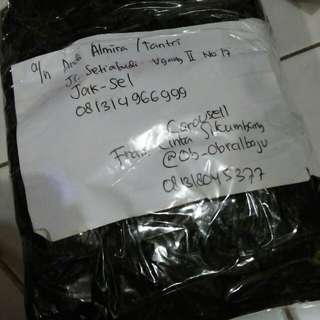 a/n Almira / Tantri
Jl. Setiabudi No 17
Jak-Sel
081314966999
Carousell
From: Cintan Sikumbang
@Ob-Obralbaju
081318045377